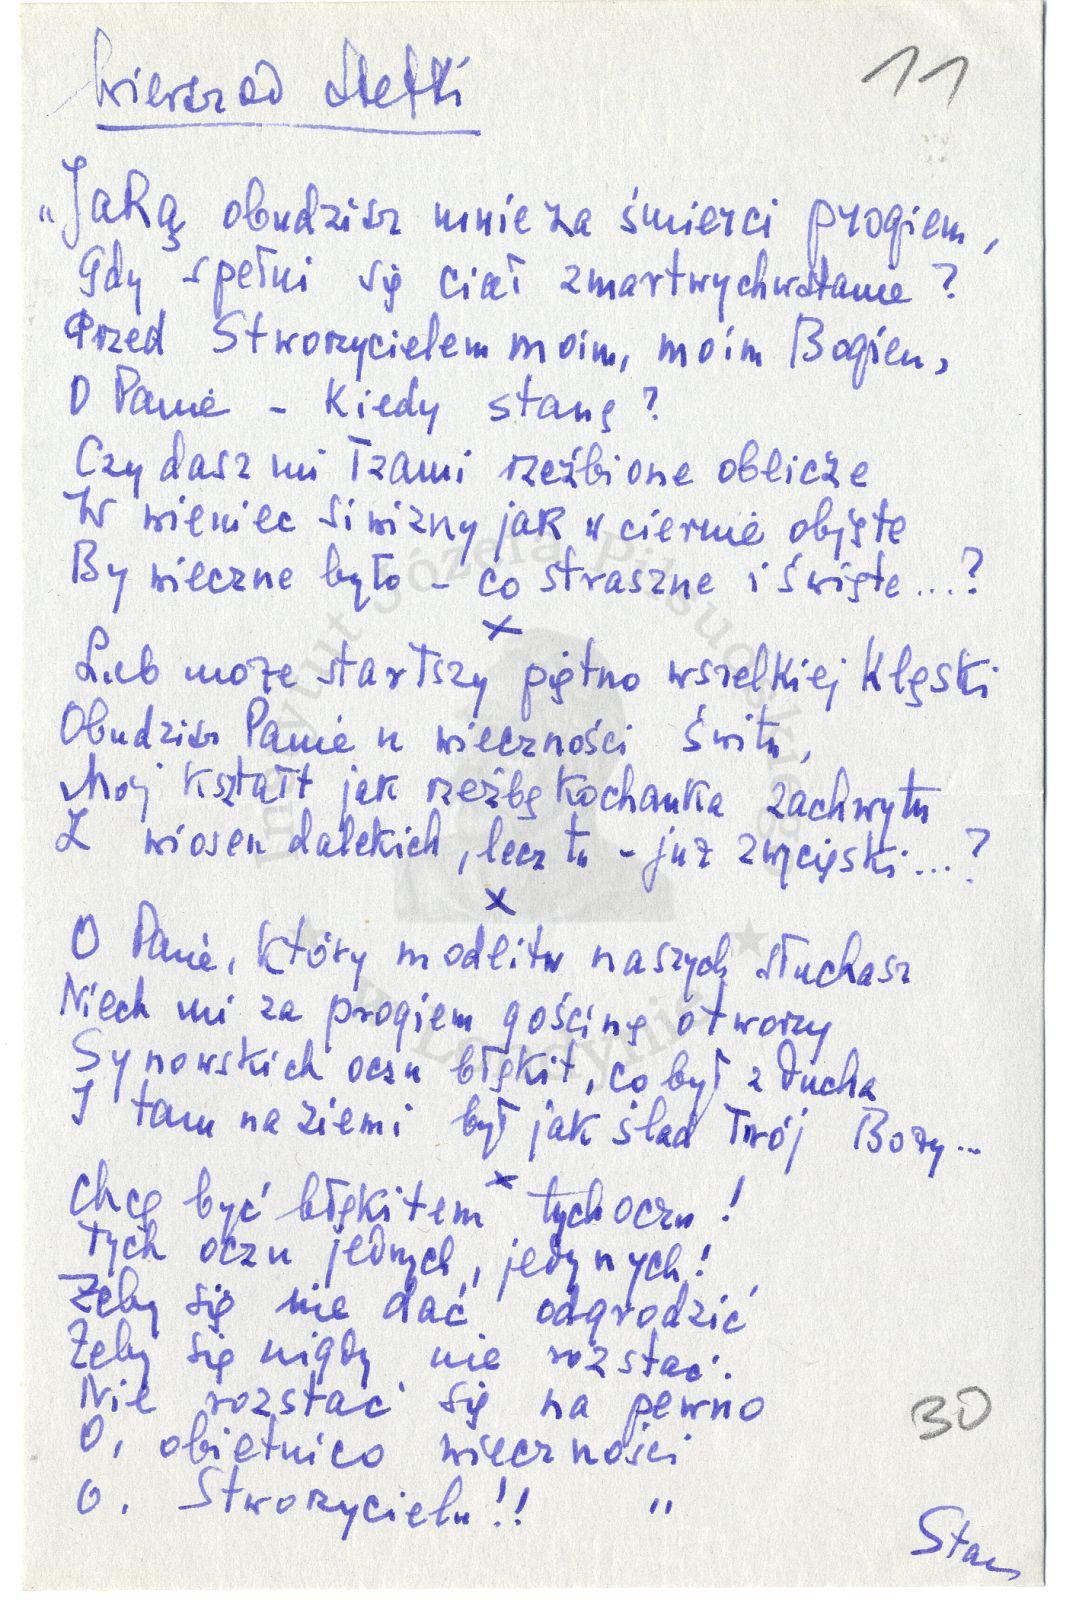 Wiersz od Stefki
11
„Jaką obudzisz mnie za śmierci progiem,
Gdy spełni się ciał zmartwychwstanie?
Przed Stworzycielem moim, moim Bogiem,
O Panie - kiedy stanę?
Czy dasz mi łzami rzeźbione oblicze
W wieniec siwizny jak w ciernie objęte
By wieczne było - co straszne i święte...?
x
Lub może startszy piętno wszelkiej klęski
Obudzisz Panie u wieczności świtu,
Mój kształt jak rzeźbę kochanka zachwytu
Z wiosen dalekich, lecz tu - już zwycięski...?
x
O Panie, który modlitw naszych słuchasz
Niech mi za progiem gościnę otworzy
Synowskich oczu błękit, co był z ducha
I tam na ziemi był jak ślad Twój Boży...
x
Chcę być błękitem tych oczu!
Tych oczu jednych, jedynych!
Żeby się nie dać odgrodzić
Żeby się nigdy nie rozstać.
Nie rozstać się na pewno
O, obietnico wieczności
O, Stworzycielu!! "
30
Stan
Instytut Józefa Piłsudskiego
w Londynie